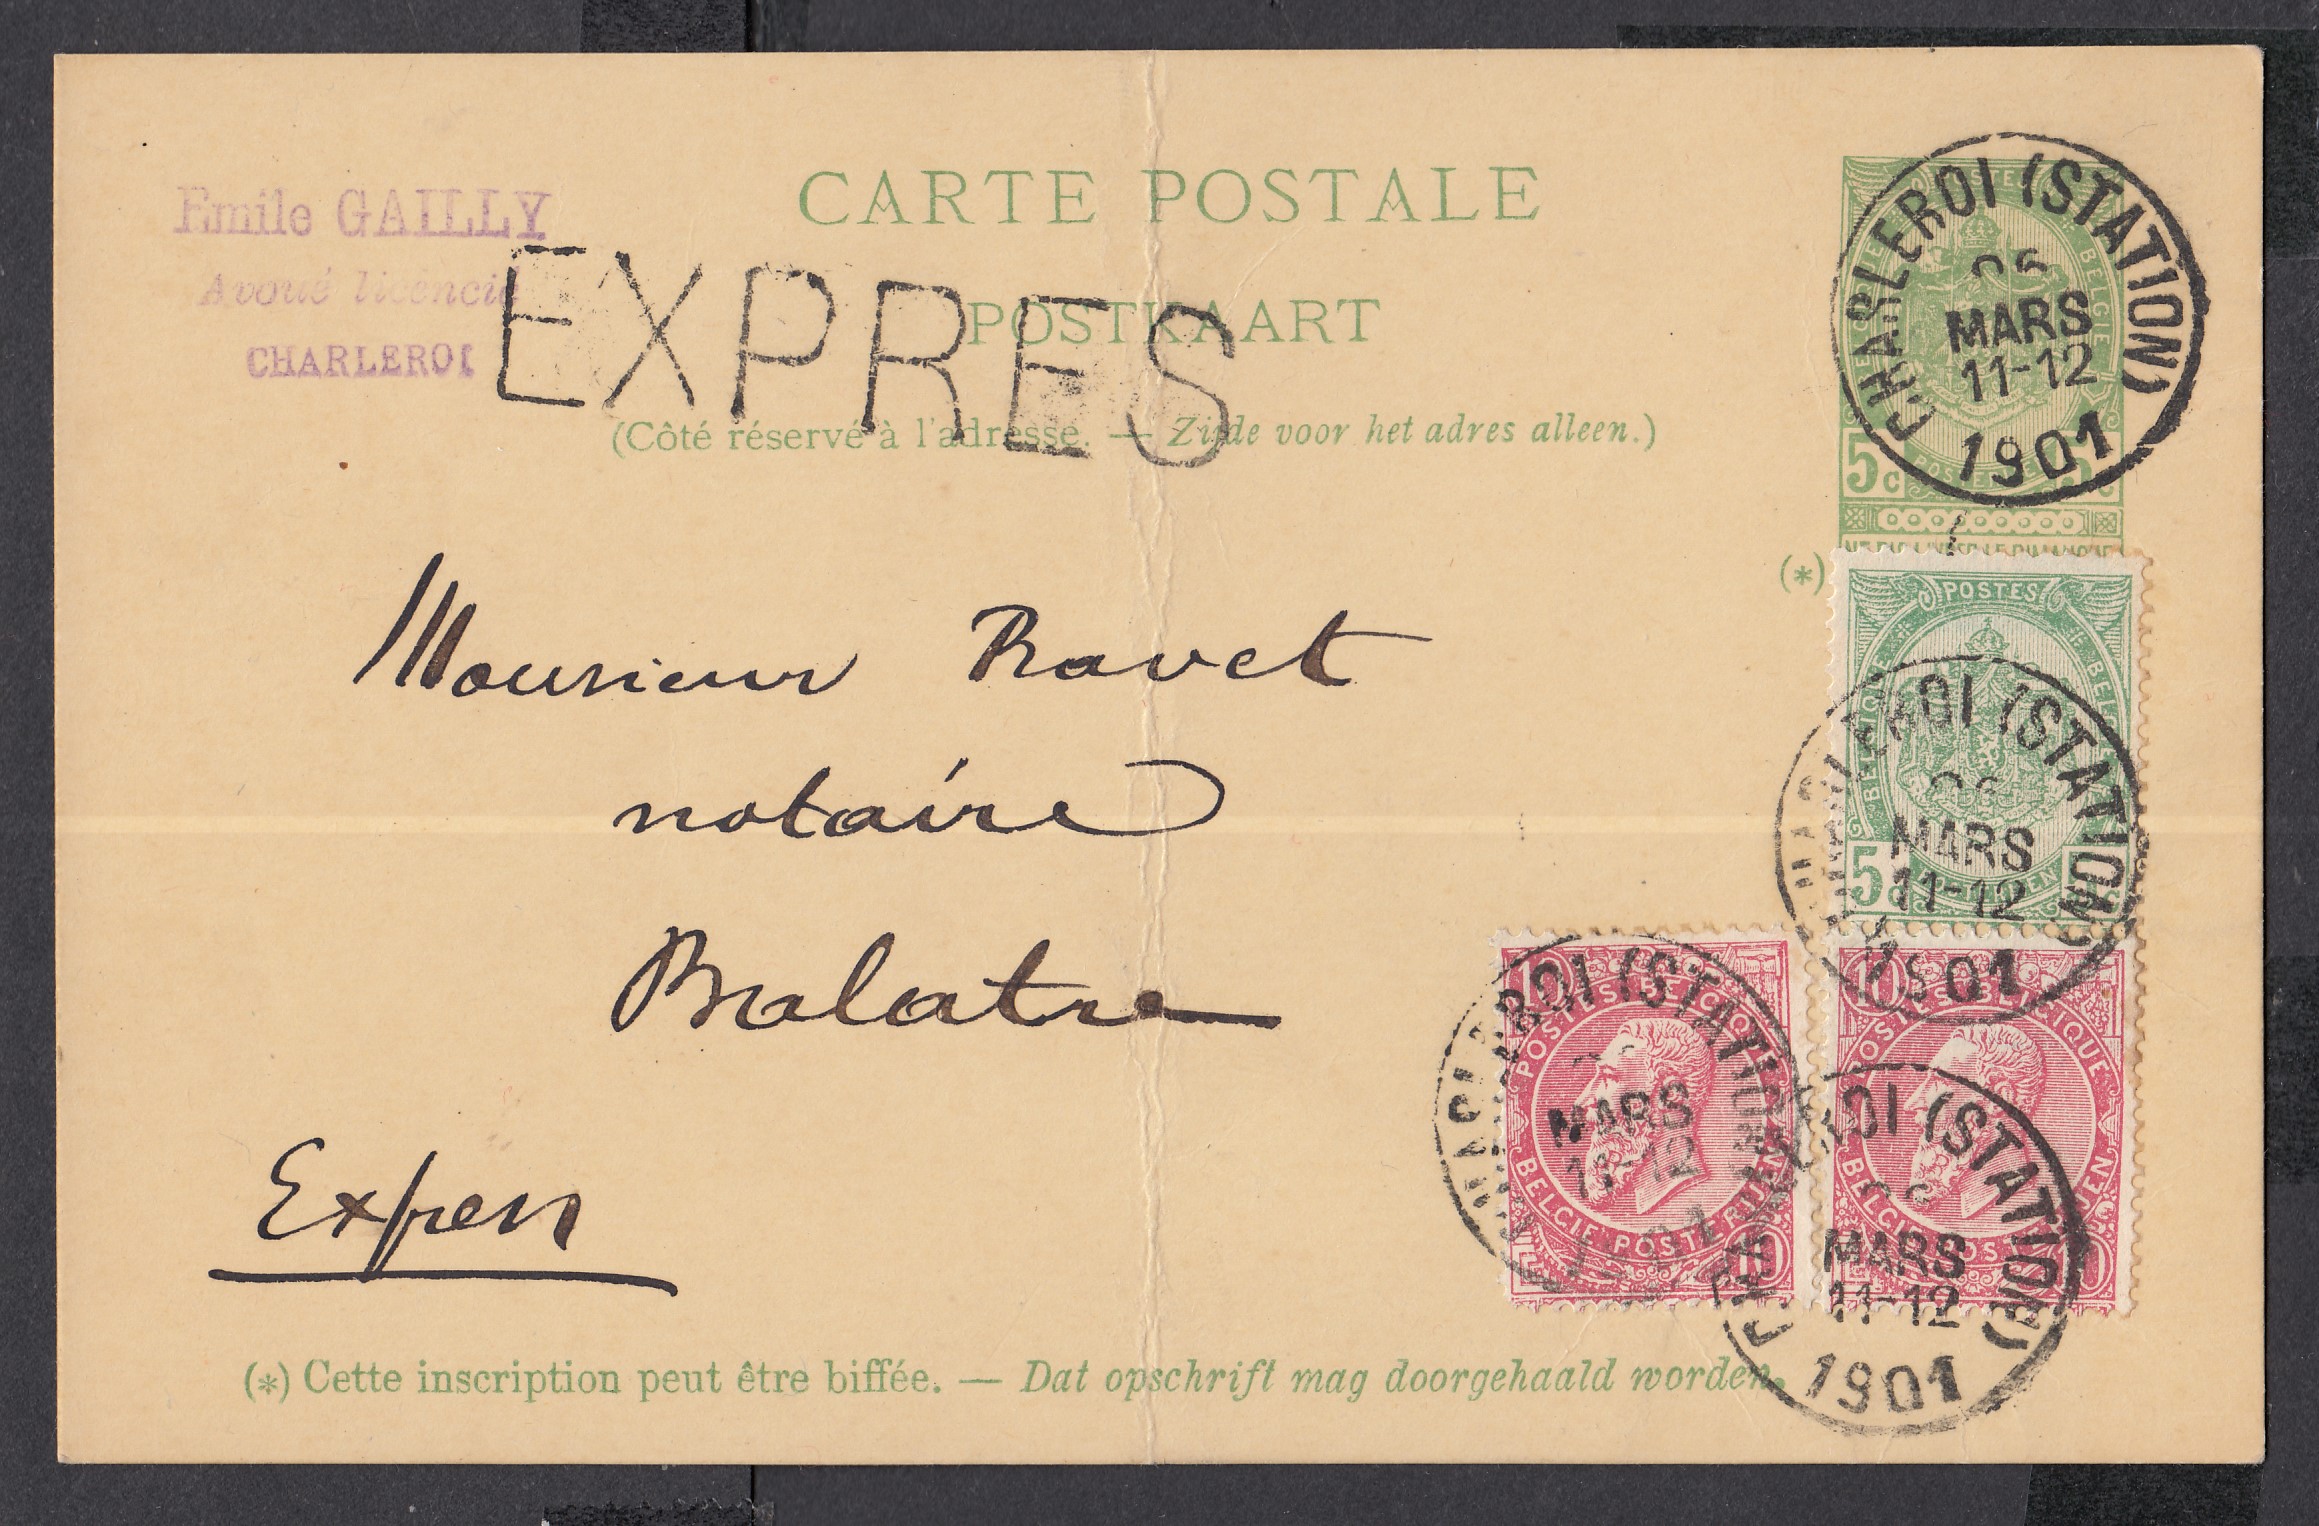 CARTE POSTALE
Emile GAILLY
Avoué licencié
CHARLEROI
EXPRES
POSTKAART
(Côté réservé à l'adresse. — Zijde voor het adres alleen.)
CHARLEROI (STATION)
MARS
11-12
1901
5c
(*)
Monsieur Ravet
notaire
Balatre
Express
POSTES
BELGIQUE
CHARLEROI (STATION)
MARS
11-12
1901
5c
10 10
POSTES BELGIQUE
BELGIE POSTERIJEN
CHARLEROI (STATION)
MARS
11-12
1901
POSTES BELGIQUE
MARS
11-12
1901
(*) Cette inscription peut être biffée. — Dat opschrift mag doorgehaald worden.